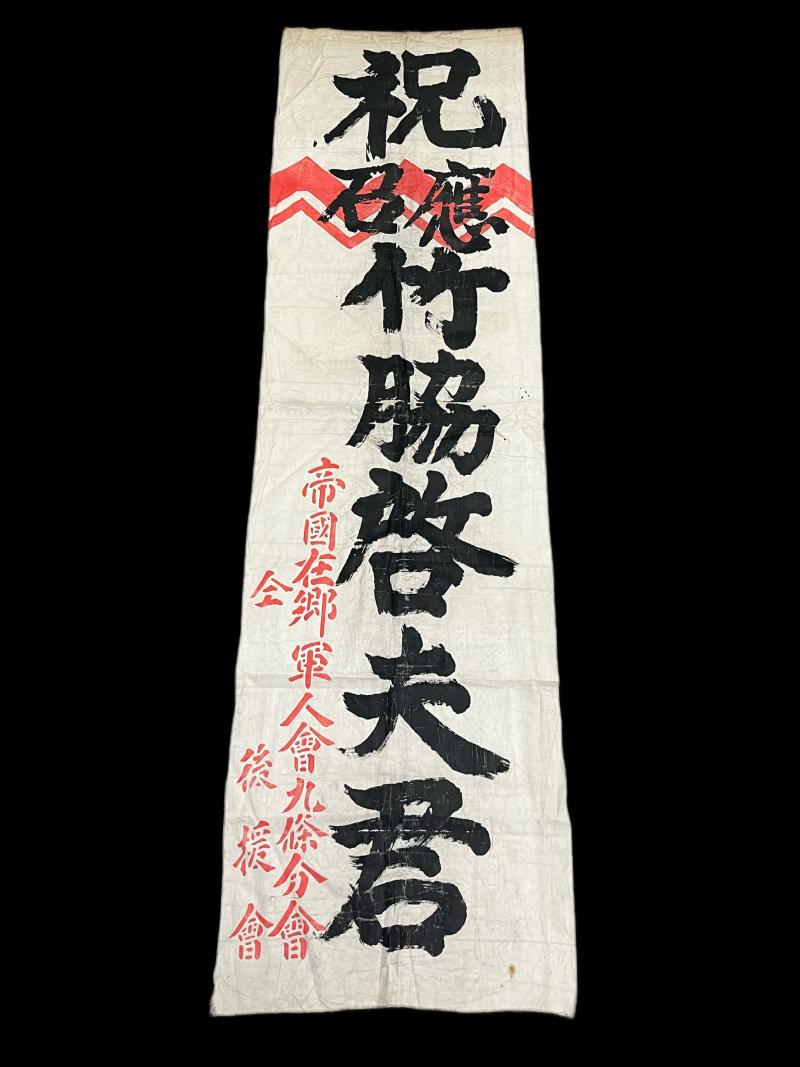 祝應召竹脇啓夫君
帝國在郷軍人會九條分會
仝後援會